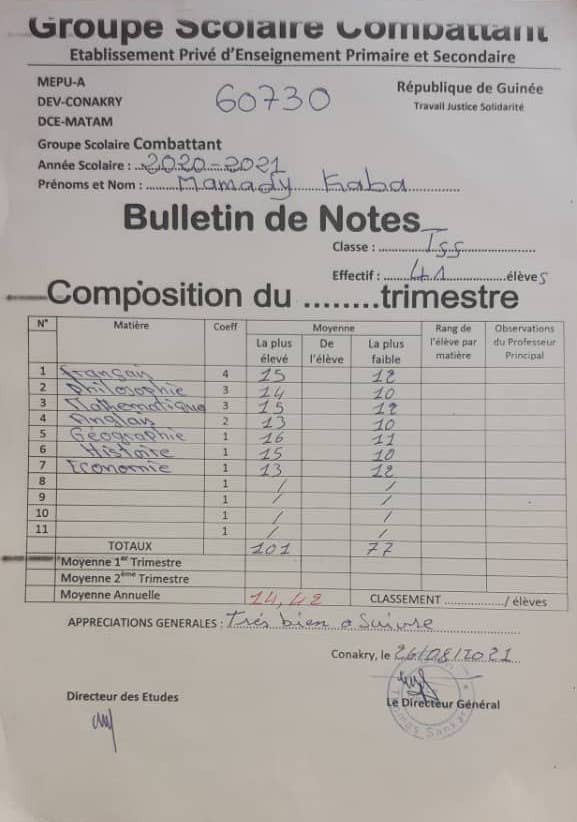 Groupe Scolaire Combattant
Etablissement Privé d'Enseignement Primaire et Secondaire
MEPU-A
DEV-CONAKRY
DCE-MATAM
60730
République de Guinée
Travail Justice Solidarité
Groupe Scolaire Combattant
Année Scolaire : 2020-2021
Prénoms et Nom : Mamady Kaba
Bulletin de Notes
Classe : Tss
Effectif : 41 élèves
Composition du ........trimestre
N° Matière Coeff Moyenne Rang de l'élève par matière Observations du Professeur Principal
La plus élevé De l'élève La plus faible
1 Français 4 15 12
2 Philosophie 3 14 10
3 Mathématique 3 15 12
4 Anglais 2 13 10
5 Géographie 1 16 11
6 Histoire 1 15 10
7 Economie 1 13 12
8 1 / /
9 1 / /
10 1 / /
11 1 / /
TOTAUX 101 77
Moyenne 1er Trimestre
Moyenne 2ème Trimestre
Moyenne Annuelle 14,42 CLASSEMENT ................/ élèves
APPRECIATIONS GENERALES : Très bien à Suivre
Conakry, le 26/08/2021
Directeur des Etudes
Le Directeur Général
Thomas Sankar